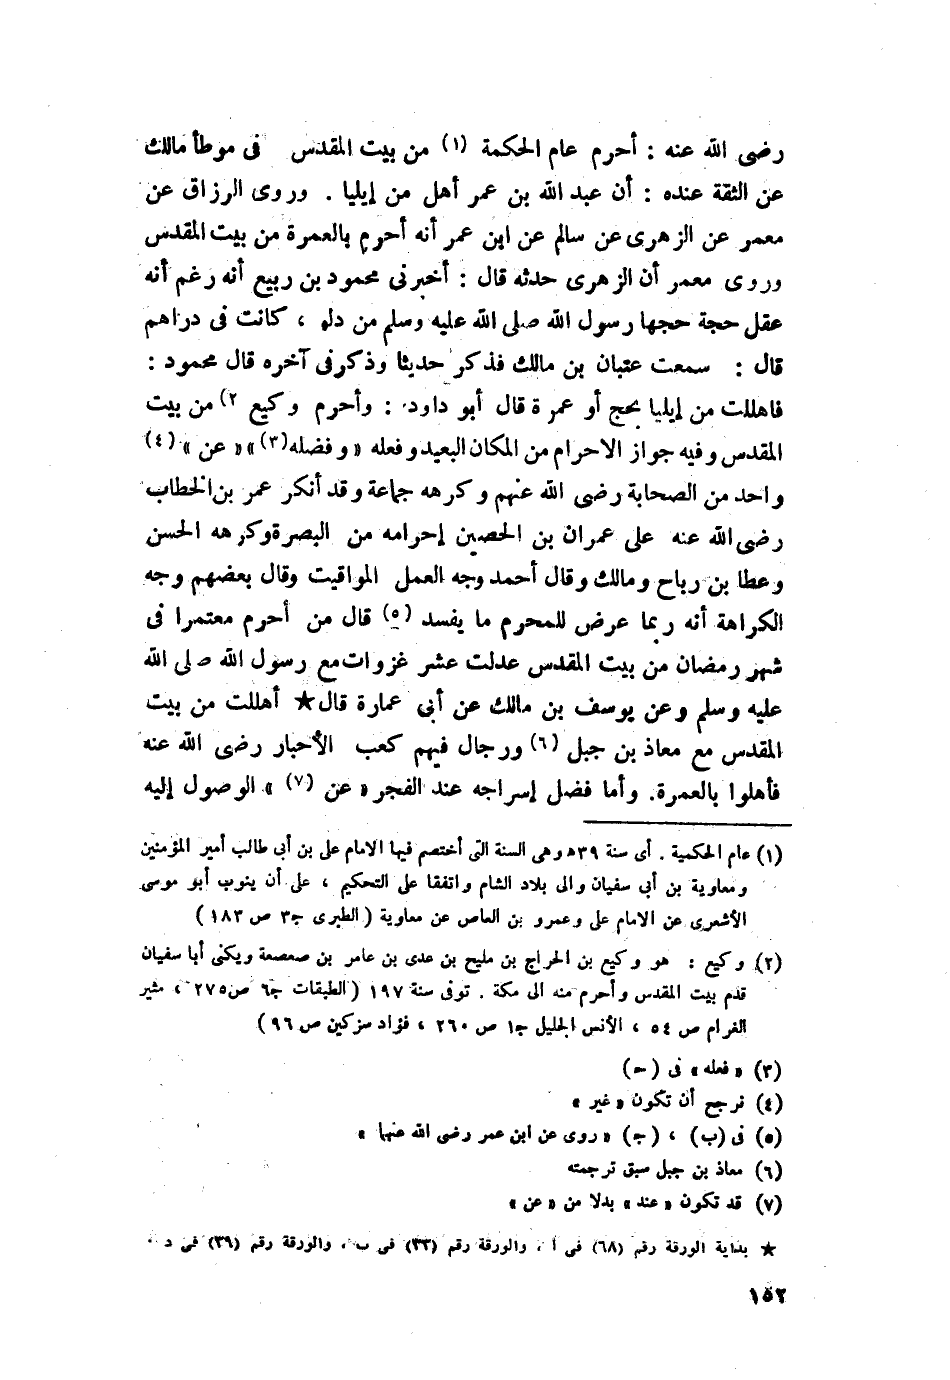 رضى الله عنه : أحرم عام الحكمة (١) من بيت المقدس فى موطأ مالك
عن الثقة عنده : أن عبد الله بن عمر أهل من إيليا . وروى الرزاق عن
معمر عن الزهرى عن سالم عن ابن عمر أنه أحرم بالعمرة من بيت المقدس
وروى معمر أن الزهرى حدثه قال : أخبرنى محمود بن ربيع أنه رغم أنه
عقل حجة حجها رسول الله صلى الله عليه وسلم من دلو ، كانت فى دراهم
قال : سمعت عتبان بن مالك فذكر حديثا وذكر فى آخره قال محمود :
فاهللت من إيليا بحج أو عمرة قال أبو داود : وأحرم وكيع ٢) من بيت
المقدس وفيه جواز الاحرام من المكان البعيد وفعله « وفضله(٣)» « عن » (٤)
واحد من الصحابة رضى الله عنهم وكرهه جماعة وقد أنكر عمر بن الخطاب
رضى الله عنه على عمران بن الحصين إحرامه من البصرة وكرهه الحسن
وعطا بن رباح ومالك وقال أحمد وجه العمل المواقيت وقال بعضهم وجه
الكراهة أنه ربما عرض للمحرم ما يفسد (٥) قال من أحرم معتمرا فى
شهر رمضان من بيت المقدس عدلت عشر غزوات مع رسول الله صلى الله
عليه وسلم وعن يوسف بن مالك عن أبى عمارة قال★ أهللت من بيت
المقدس مع معاذ بن جبل (٦) ورجال فيهم كعب الأحبار رضى الله عنه
فأهلوا بالعمرة. وأما فضل إسراجه عند الفجر « عن (٧) » الوصول إليه
(١) عام الحكمية . أى سنة ٣٩ه وهى السنة التى أختصم فيها الامام على بن أبى طالب أمير المؤمنين
ومعاوية بن أبى سفيان والى بلاد الشام واتفقا على التحكيم ، على أن ينوب أبو موسى
الأشعرى عن الامام على وعمرو بن العاص عن معاوية ( الطبرى ج٣ ص ١٨٣ )
(٢) وكيع : هو وكيع بن الحراج بن مليح بن عدى بن عامر بن صعصعة ويكنى أبا سفيان
قدم بيت المقدس وأحرم منه الى مكة . توفى سنة ١٩٧ ( الطبقات ج٦ ص ٢٧٥ ، مثير
الغرام ص ٥٤ ، الأنس الجليل ج١ ص ٢٦٠ ، فؤاد سزكين ص ٩٦ )
(٣) « فعله » فى (ح)
(٤) نرجح أن تكون « غير »
(٥) فى (ب) ، (ج) « روى عن ابن عمر رضى الله عنهما »
(٦) معاذ بن جبل سبق ترجمته
(٧) قد تكون « عند » بدلا من « عن »
★ بداية الورقة رقم (٦٨) فى أ ، والورقة رقم (٣٣) فى ب ، والورقة رقم (٣٩) فى د .
١٥٢